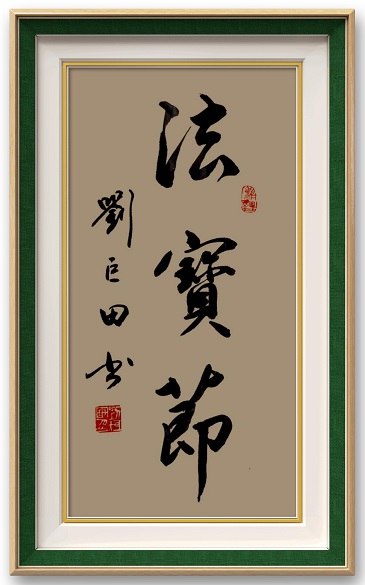 法寶節
劉巨田书